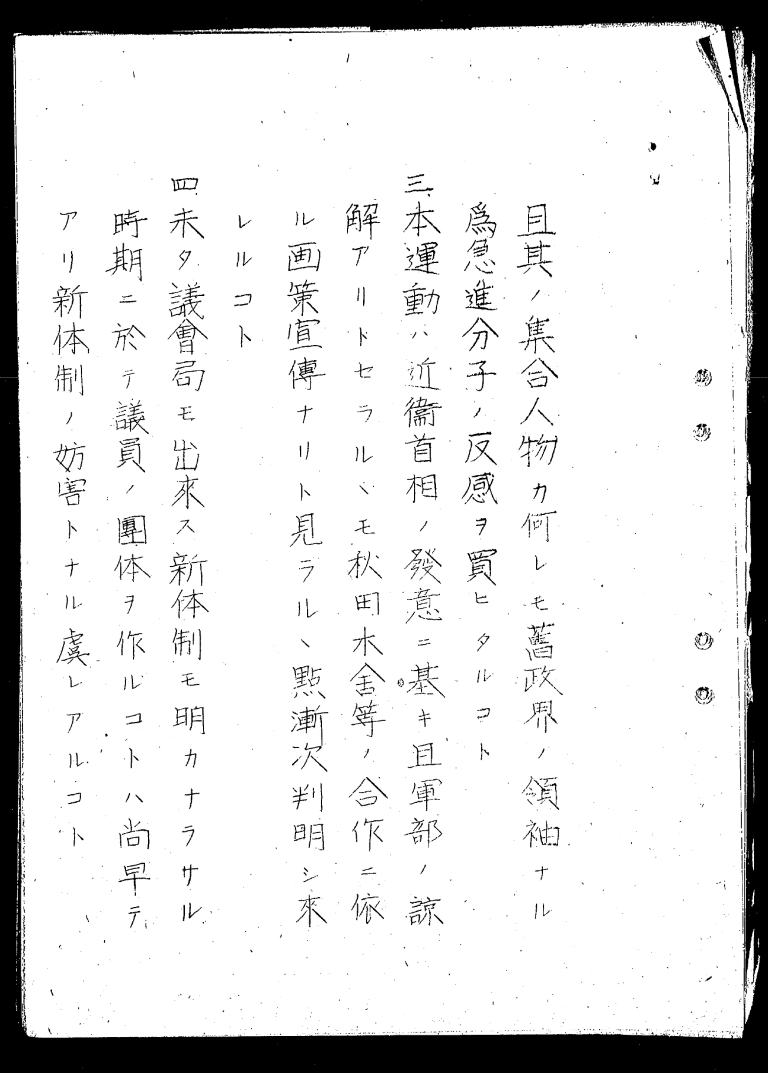 且其ノ集合人物カ何レモ舊政界ノ領袖ナル
爲急進分子ノ反感ヲ買ヒタルコト
三、本運動ハ近衞首相ノ發意ニ基キ且軍部ノ諒
解アリトセラルヽモ秋田木舍等ノ合作ニ依
ル画策宣傳ナリト見ラルヽ點漸次判明シ來
レルコト
四、未タ議會局モ出來ス新体制モ明カナラサル
時期ニ於テ議員ノ團体ヲ作ルコトハ尚早テ
アリ新体制ノ妨害トナル虞レアルコト